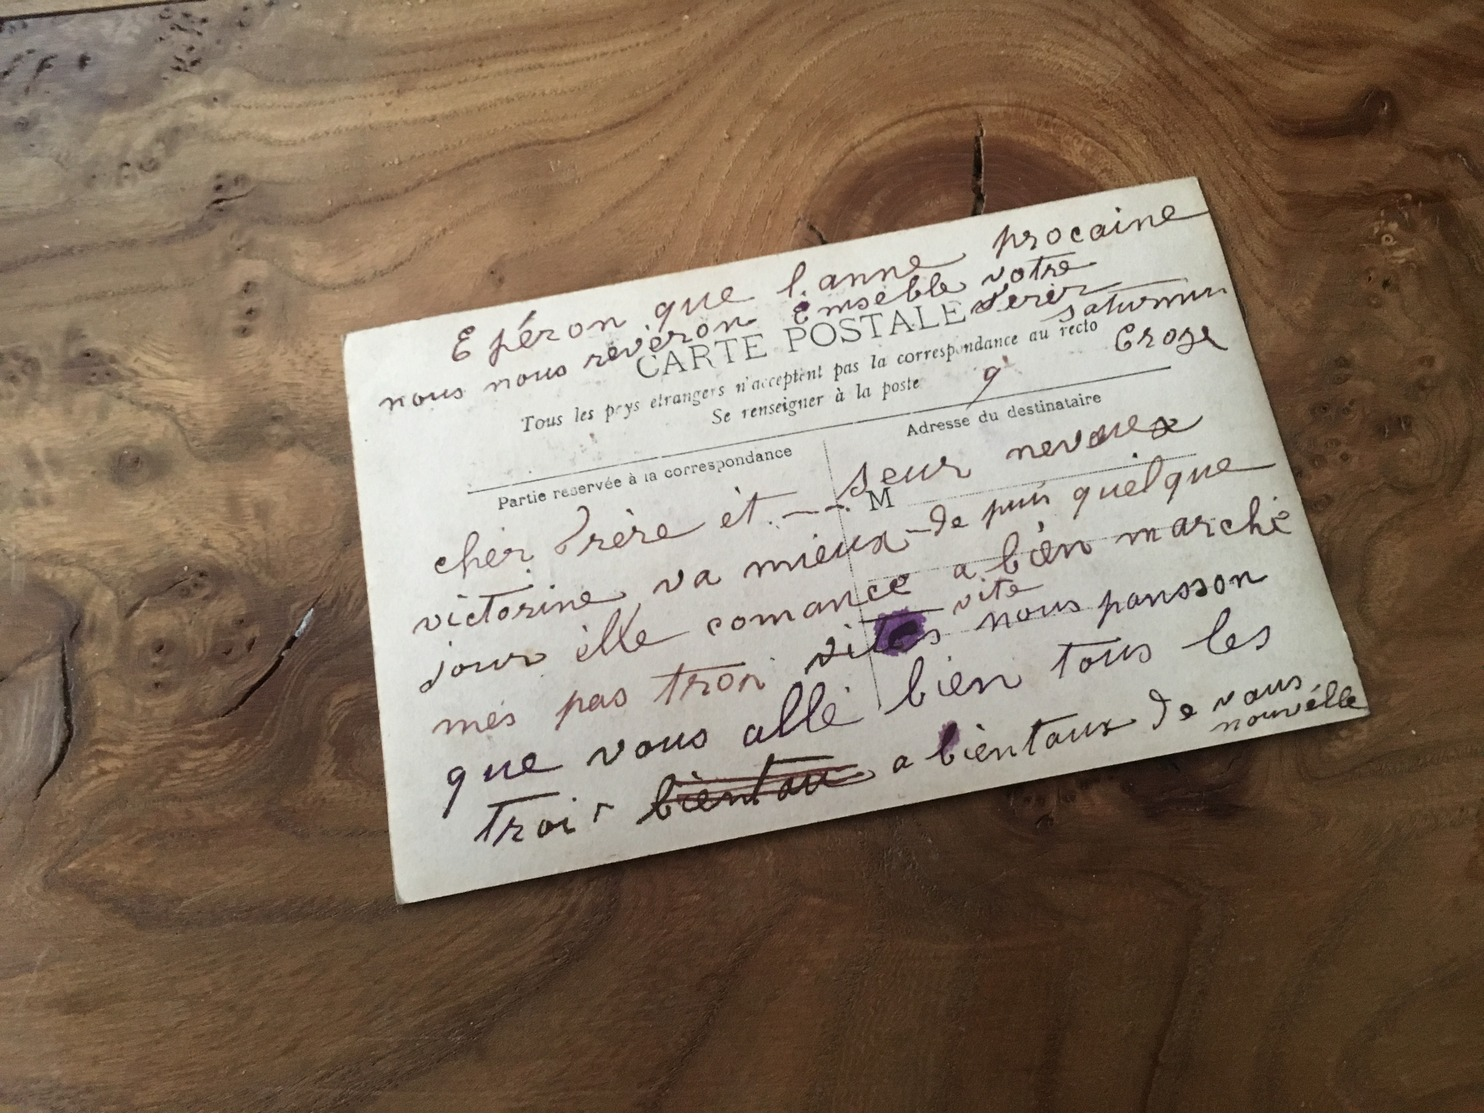 Epéron que l'anne procaine
nous nous revèron Emseble votre
frerer saturnin
Croze
CARTE POSTALE
Tous les pays etrangers n'acceptent pas la correspondance au recto
Se renseigner à la poste
9
Partie reservée à la correspondance
Adresse du destinataire
M
cher frère èt seur neveuex
victorine va mieux de puis quelque
jour ille comance a bien marché
mes pas tron vites vite nous pansson
que vous allé bien tous les
troi r bientau a bientaux de vous
nouvélle